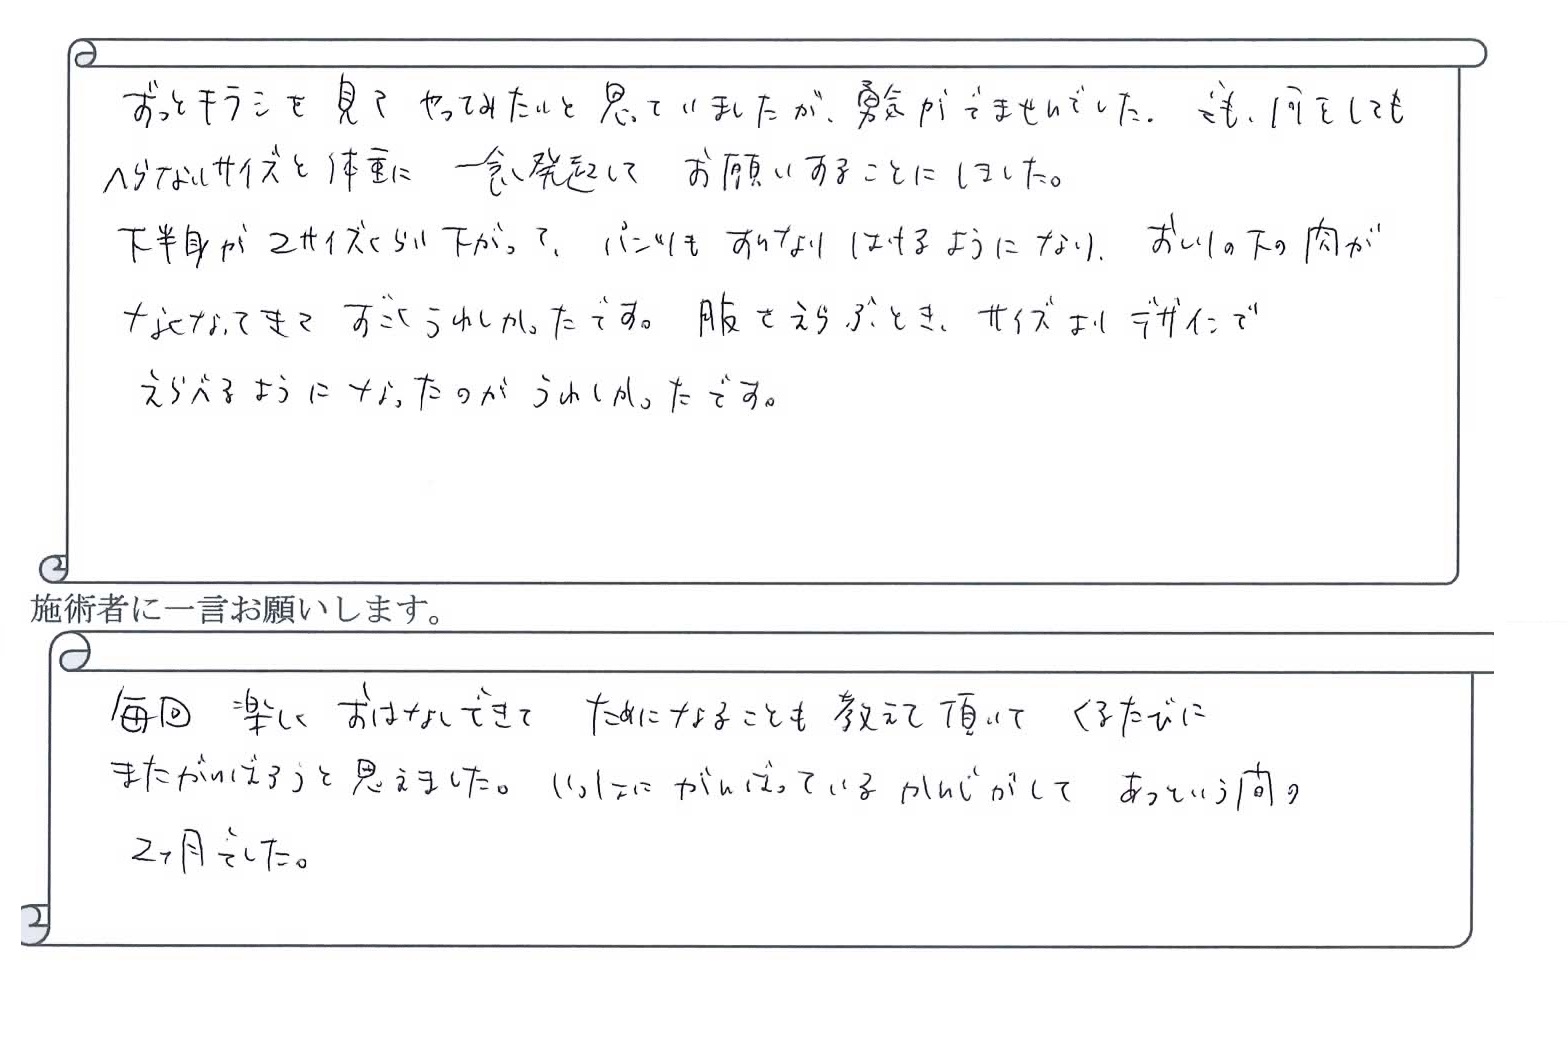 ずっとチラシを見てやってみたいと思っていましたが、勇気がでませんでした。でも、何をしても
へらないサイズと体重に 一念発起して お願いすることにしました。
下半身が2サイズくらい下がって、パンツも すんなりはけるようになり、おしりの下の肉が
なくなってきて すごくうれしかったです。服をえらぶとき、サイズよりデザインで
えらべるようになったのがうれしかったです。
施術者に一言お願いします。
毎回 楽しくおはなしできて ためになることも教えて頂いて くるたびに
またがんばろうと思えました。いっしょにがんばっているかんじがして あっという間の
2ヶ月でした。